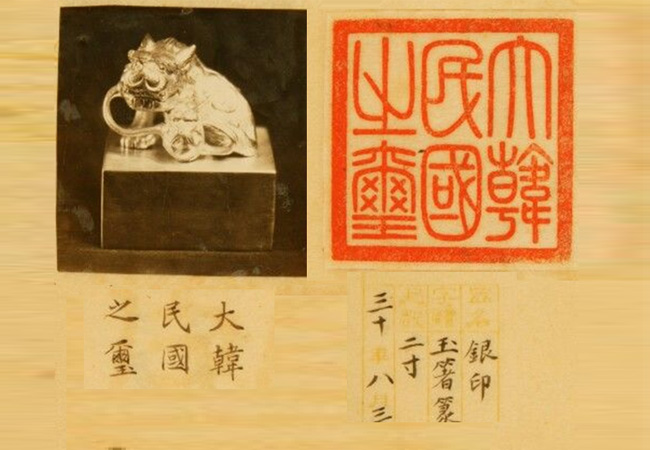 大韓
民國
之璽
大韓
民國
之璽
銀印
字體 玉箸篆
二寸
三十年八月三